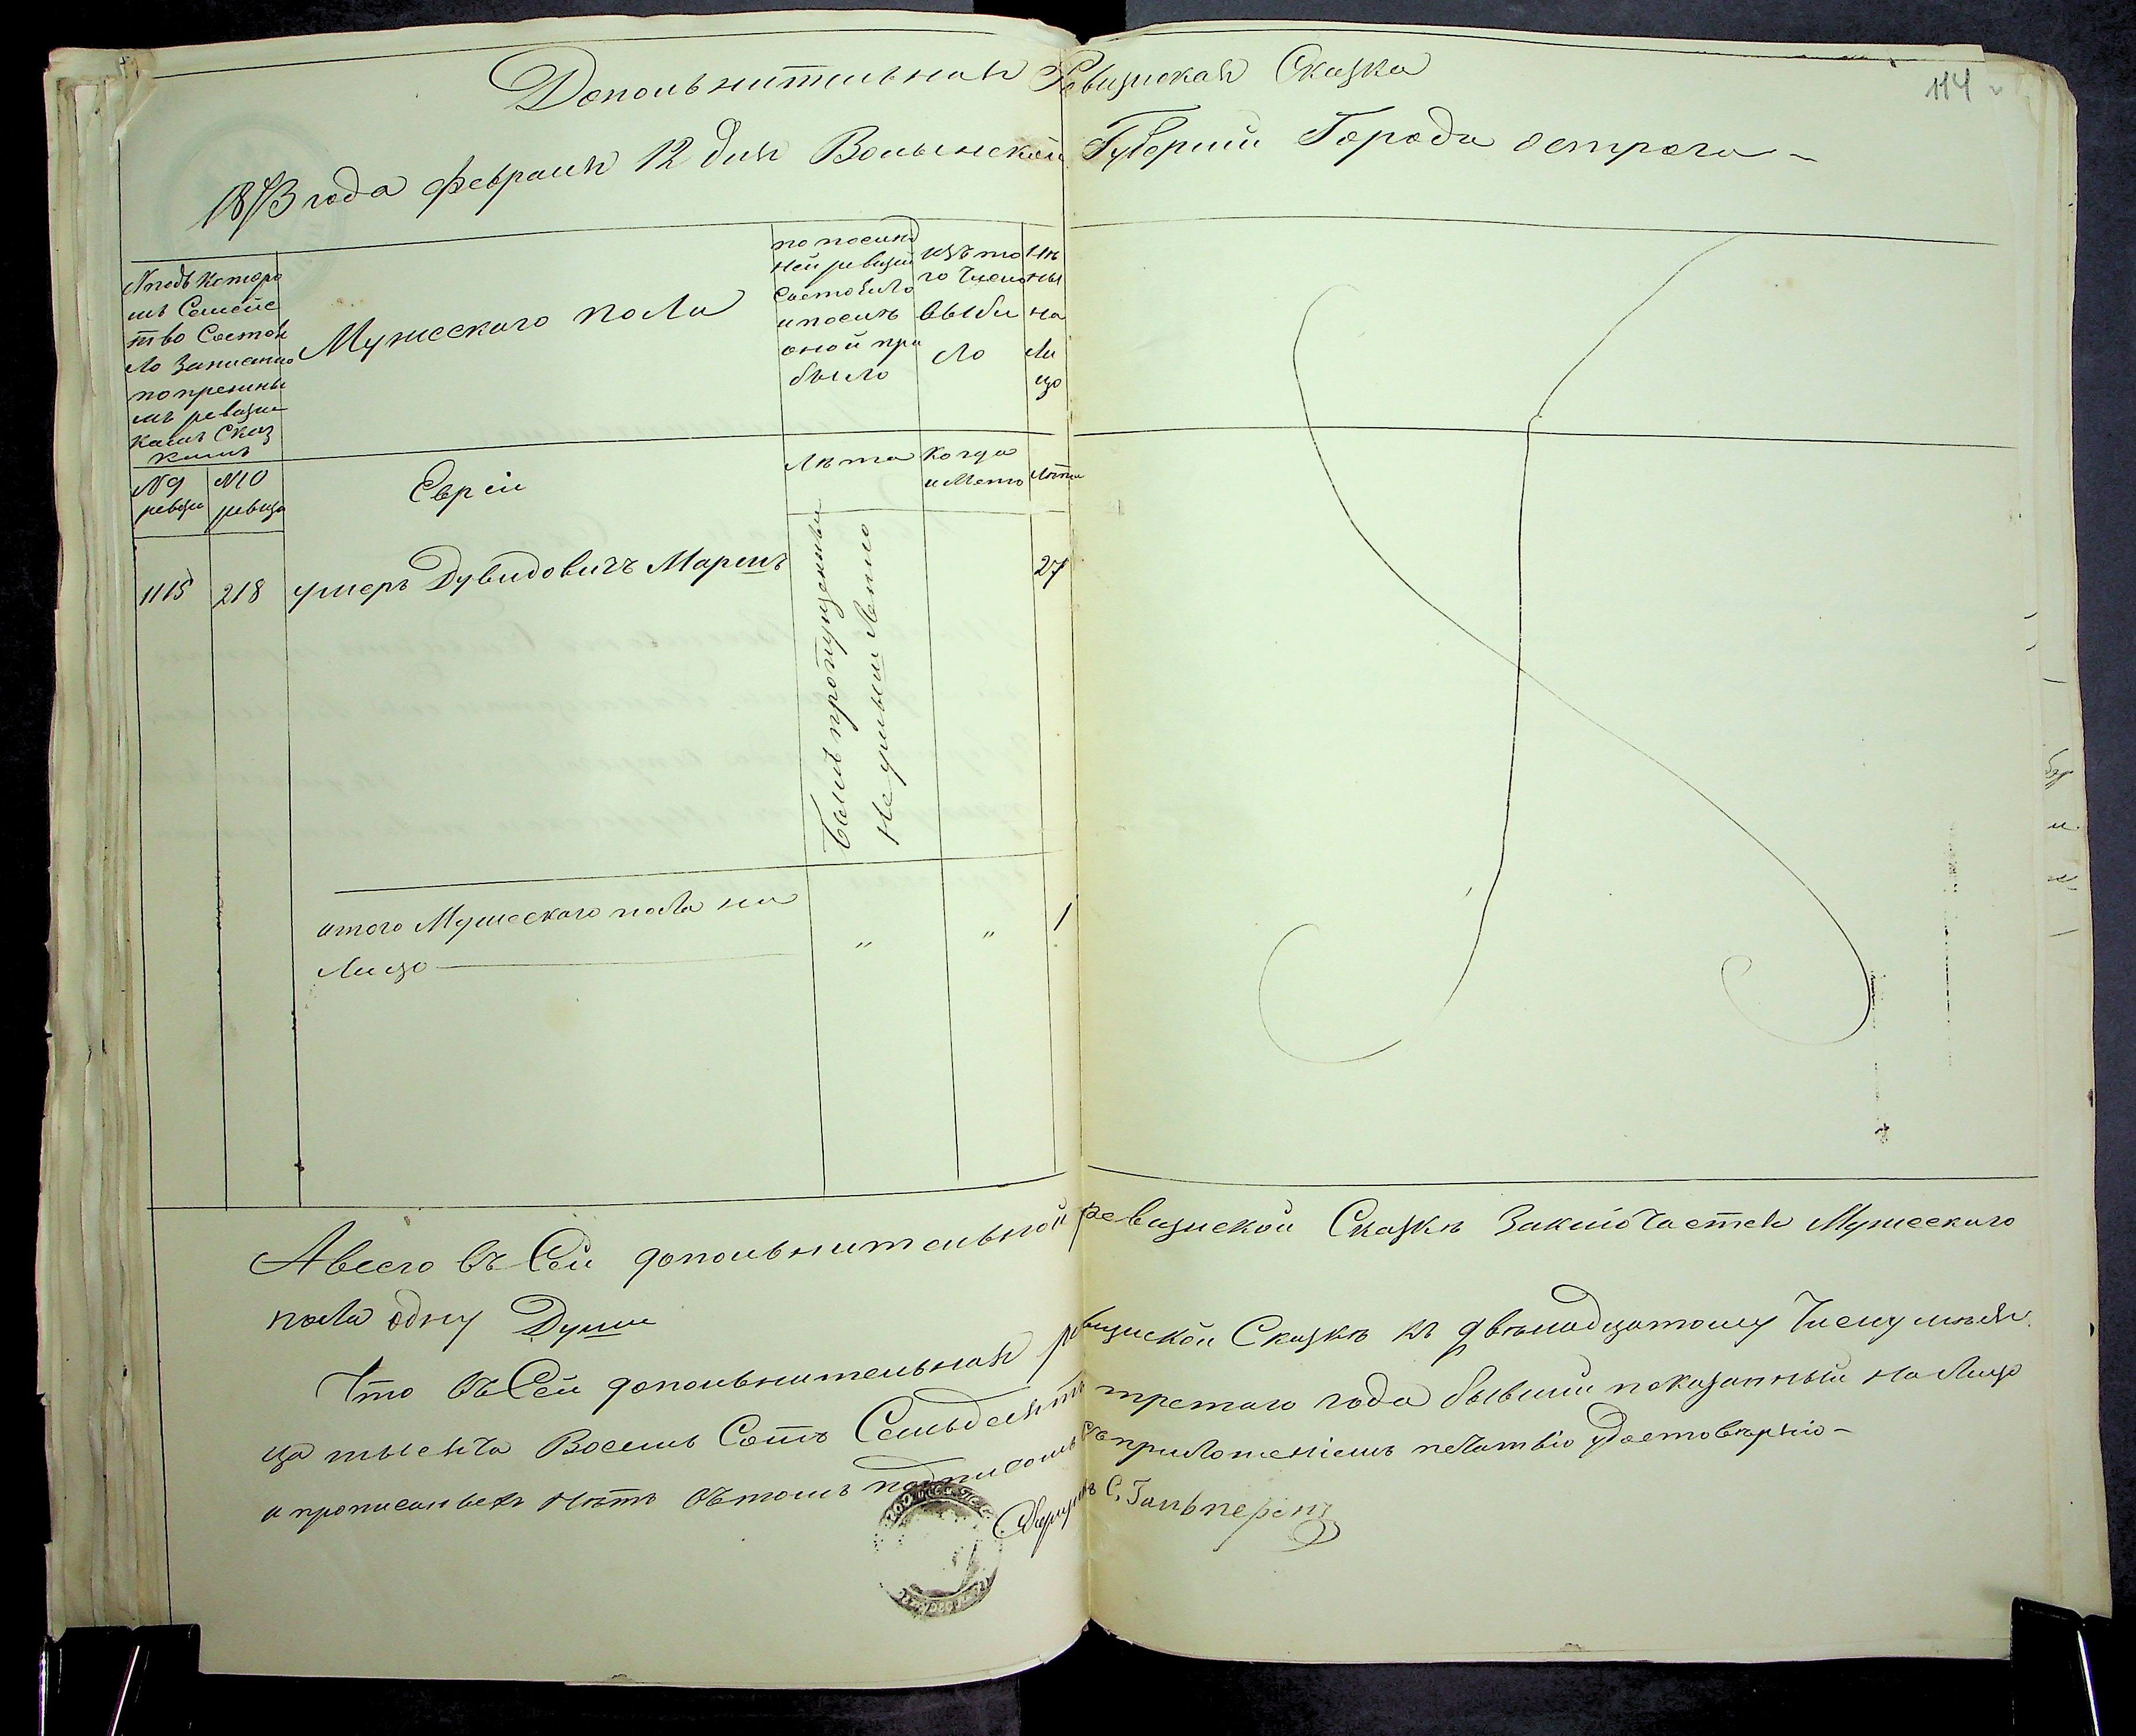 Допольнительная Ревизская Сказка
114
1873 года февраля 12 дня Волынской Губернии Города острога
№ подъ которо
мъ Семейс
тво Состоя
ло Записанно
по прежны
мъ ревизс
камъ Сказ
камъ
Мужескаго пола
по послед
ней ревизии
Состояло
и после
оной при
было
изъ то
го числа
выбы
ло
ны
на
ли
цо
№ 9 ревизи
№ 10 ревизи
Евреи
Лета
Когда
и Лета
1115 218 умеръ Дувидовичъ Маремъ 27
Былъ пропущенный
итого Мужескаго пола на " " 1
Лицо
А всего въ Сей допольнительной ревизской Сказке Заключается Мужескаго
пола одну Души
Что въ Сей допольнительная ревизской Сказке къ двенадцатому Числу
ца тысяча Восемъ Сотъ Семьдесятъ третаго года бывший показанный на Лицо
и прописанныхъ нетъ въ томъ подписомъ Съ приложениемъ печатью Удостоверяю
С. Гальперенъ